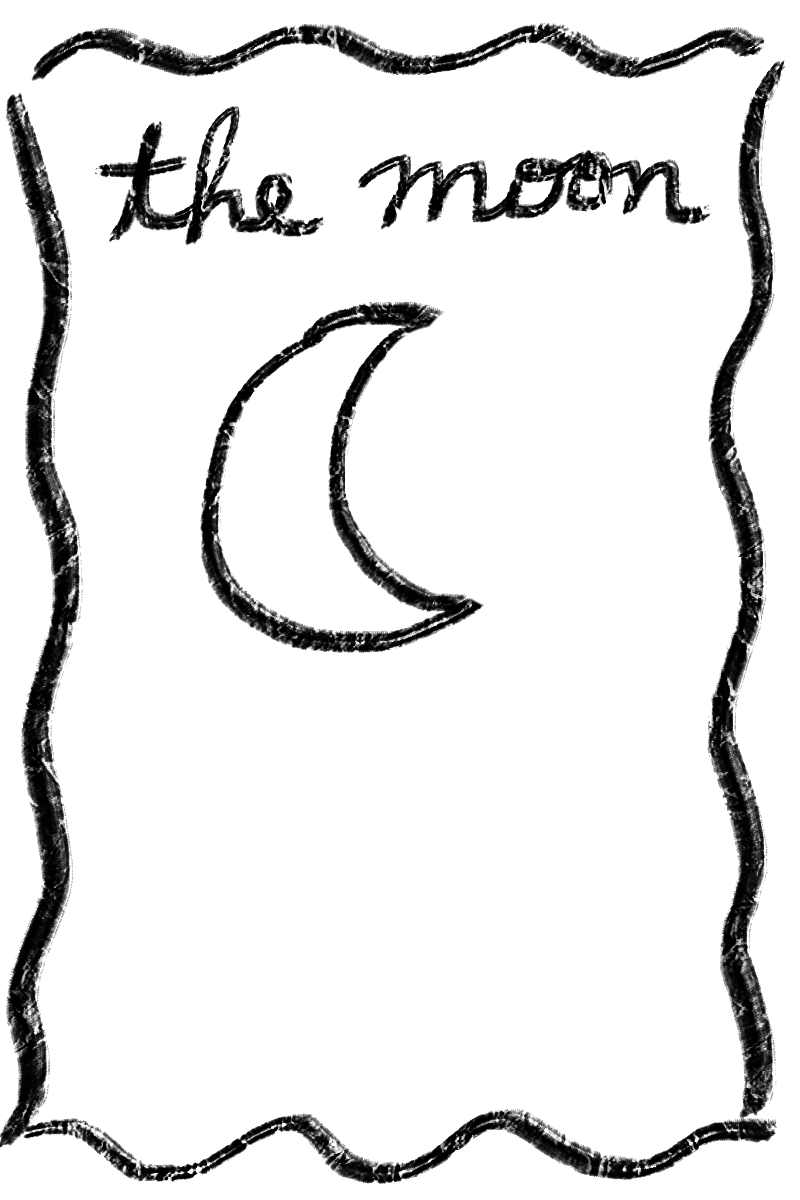 the moon